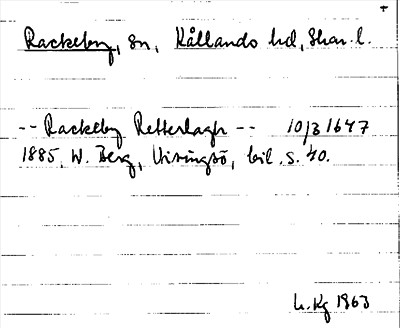 Rackeby, sn, Kållands hd, Skar. l.
-- Rackeby Retterlagh -- 10/3 1647
1885, W. Berg, Visingsö, bil. s. 40.
L. Kg 1963